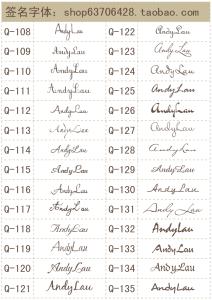 签名字体: shop63706428.taobao.com
Q-108 AndyLau Q-122 AndyLau
Q-109 AndyLau Q-123 AndyLau
Q-110 AndyLau Q-124 AndyLau
Q-111 AndyLau Q-125 AndyLau
Q-112 AndyLau Q-126 AndyLau
Q-113 AndyLau Q-127 AndyLau
Q-114 AndyLau Q-128 AndyLau
Q-115 AndyLau Q-129 AndyLau
Q-116 AndyLau Q-130 AndyLau
Q-117 AndyLau Q-131 AndyLau
Q-118 AndyLau Q-132 AndyLau
Q-119 AndyLau Q-133 AndyLau
Q-120 AndyLau Q-134 AndyLau
Q-121 AndyLau Q-135 AndyLau